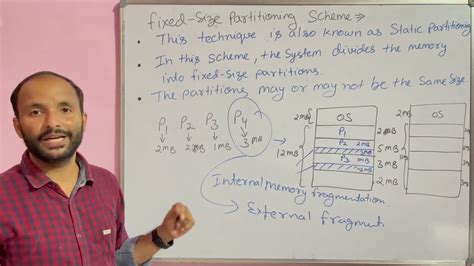 fixed-Size Partitioning Scheme →
• This technique is also known as Static Partitioning
• In this scheme, the System divides the memory
into fixed-size partitions.
• The partitions may or may not be the Same Size
P1 P2 P3 P4
2MB 2MB 1MB 3MB
12MB
2MB OS
P1 2MB
P2 5MB
P3 3MB
2MB
2MB OS
2MB
5MB
3MB
2MB
Internal memory fragmentation
External fragment